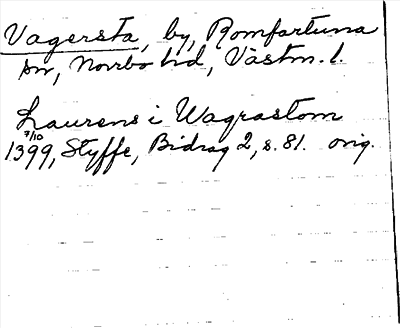 Vagersta, by, Romfartuna
sn, Norrbo hd, Västm. l.
Laurens i Wagrastom
7/10
1399, Styffe, Bidrag 2, s. 81. orig.